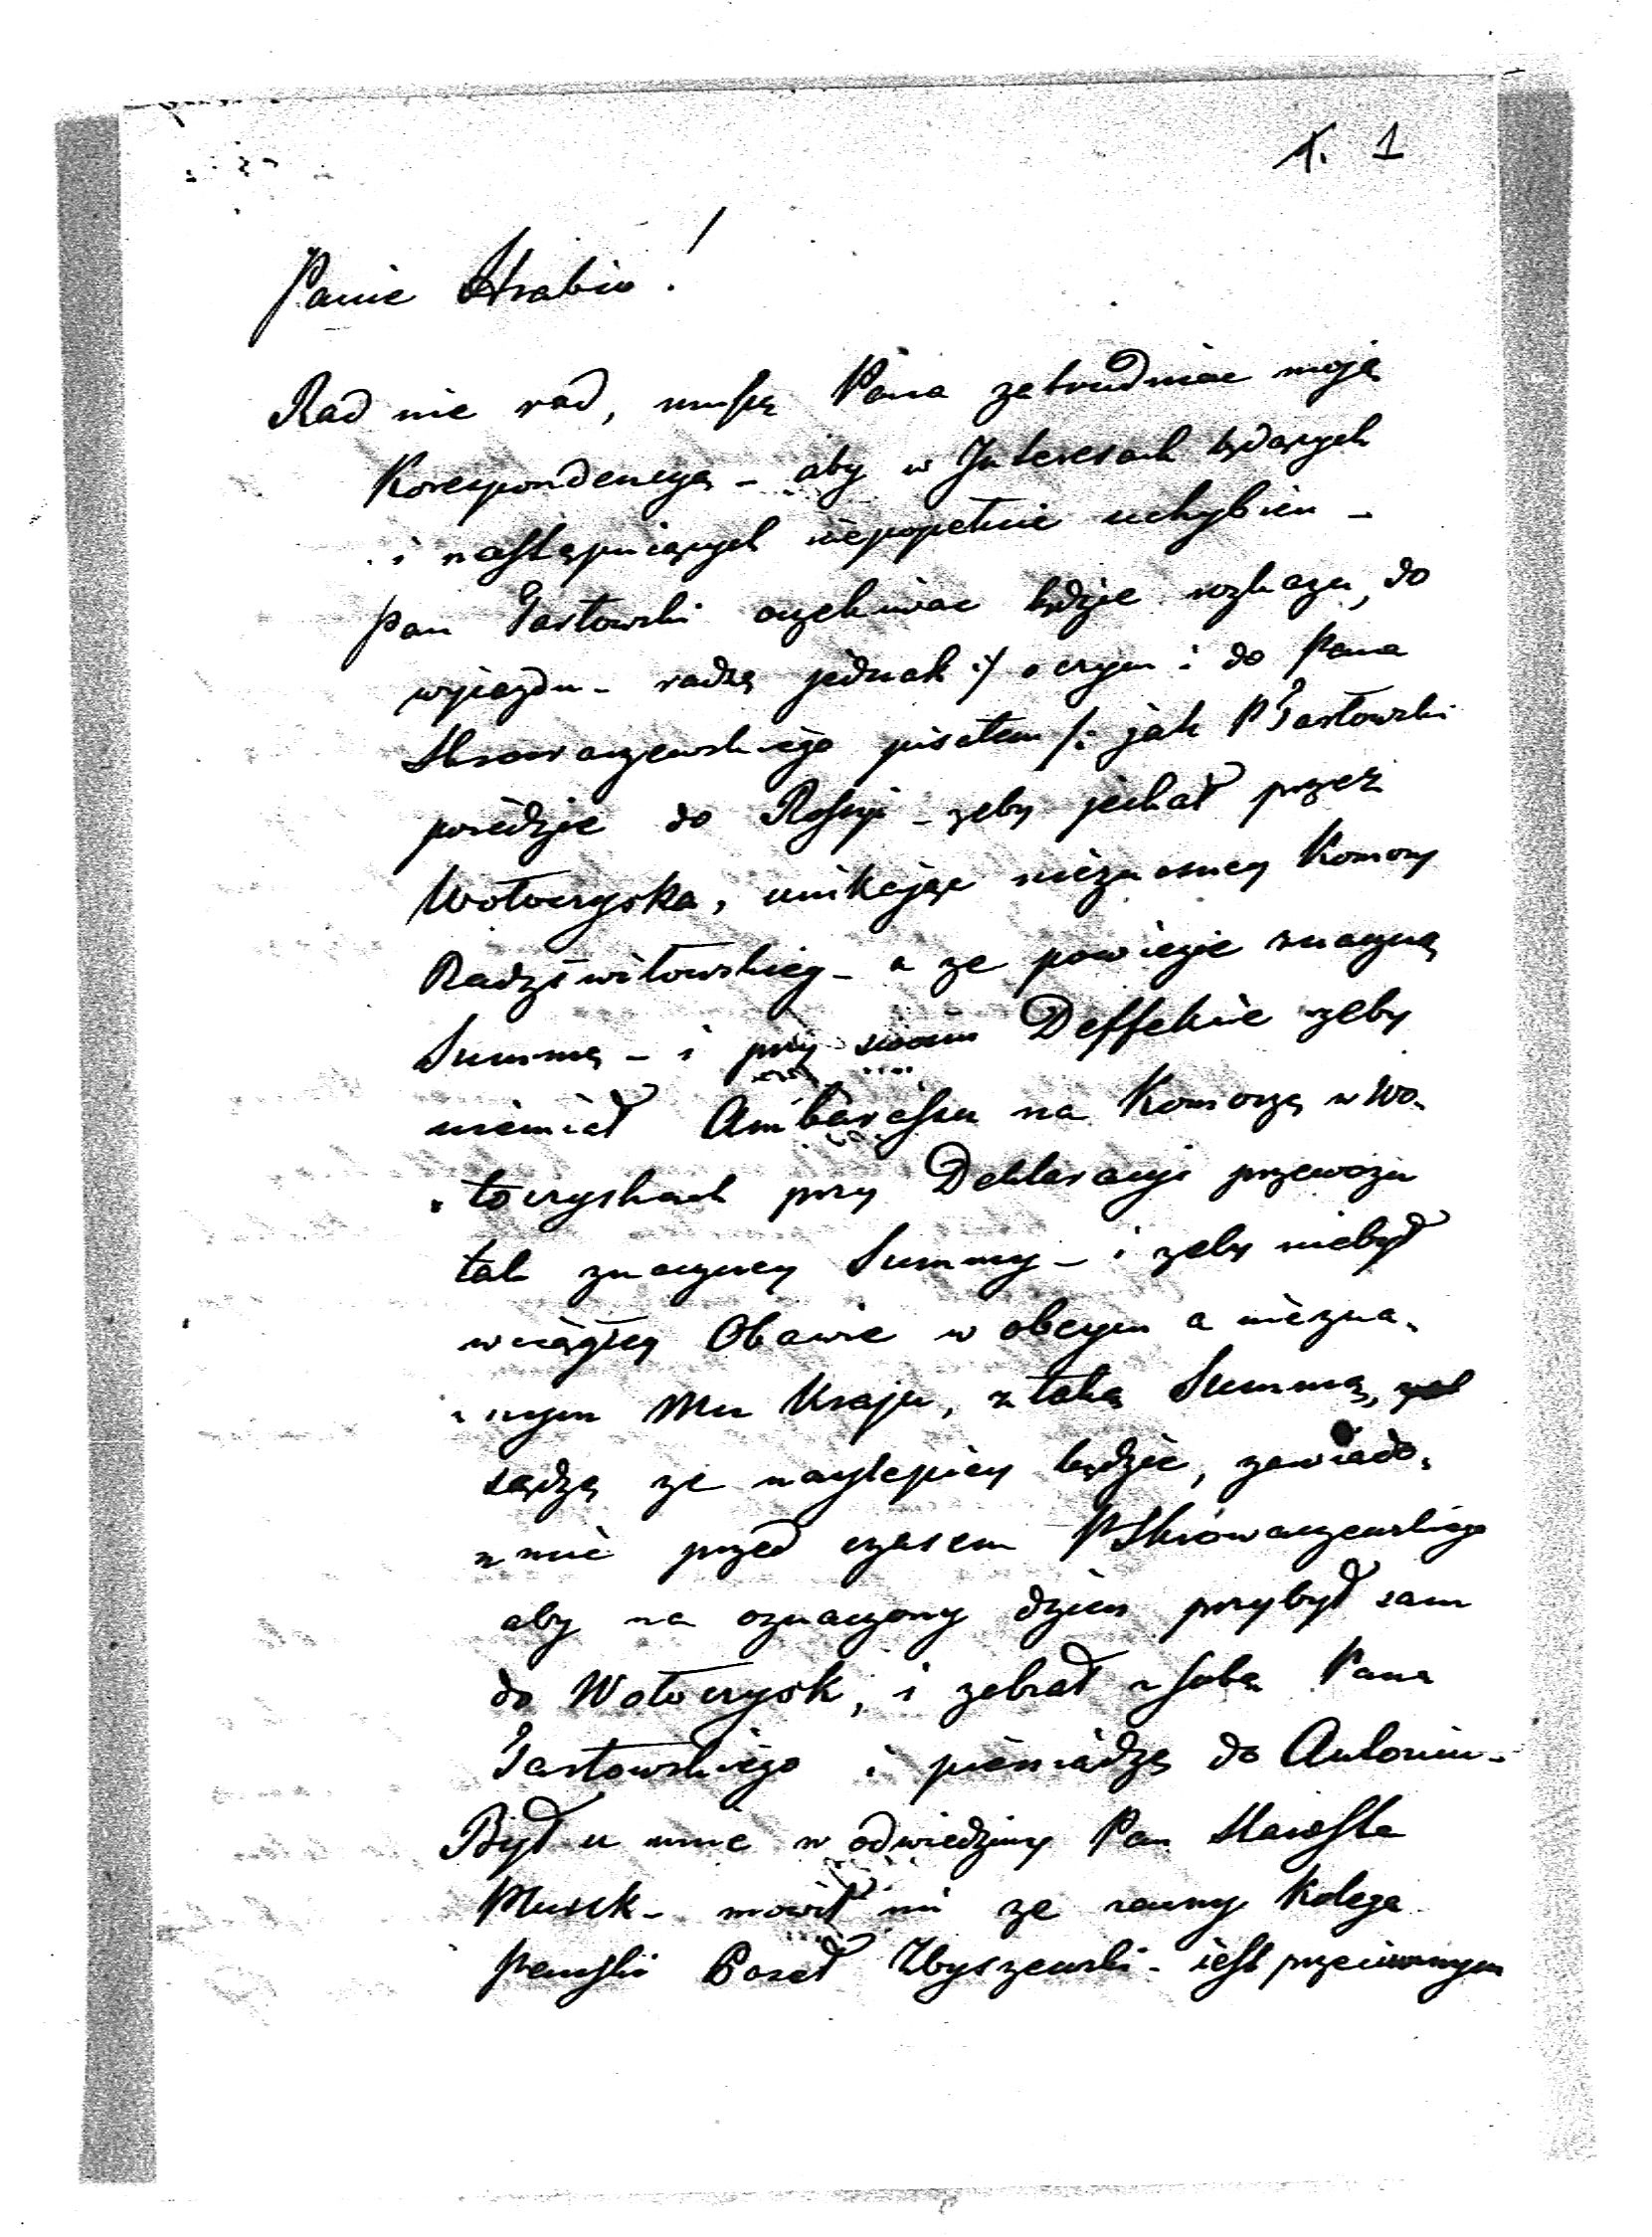 1. 1
Panie Hrabio!
Rad nie rad, muszę Pana zatrudniac moją
Korespondencyą - aby w Interesach będących
i nastąpiących niepopełnic uchybien -
Pan Jasłowski oczekiwac będzie rozkazu, do
wyjazdu - radzę jednak :/ o czym i do Pana
Skrowaczewskiego pisałem /: jak P Jasłowski
poiedzie do Rossyi - zeby jechał przez
Wołoczyska, unikając nieznosney Komory
Radziwiłowskiey - a ze powiezie znaczną
Summę - i przy swoim Deffekcie zeby
niemiał Ambarassu na Komorzę w Wo-
łoczyskach przy Deklaracyi przewozu
tak znaczney Summy - i zeby niebył
w ciągłey Obawie w obcym a niezna-
nym Mu Kraju, z taką Summą,
sądzę ze naylepiey będzie, zawiado-
mic przed czasem P Skrowaczewskiego
aby na oznaczony dzien przybył sam
do Wołoczysk, i zebrał z sobą Pana
Jasłowskiego i pieniądze do Antonin -
Był u mnie w odwiedziny Pan Starosta
Musck - mowił mi ze zacny Kolega
Panski Poseł Zbyszewski - iest przeciwnym